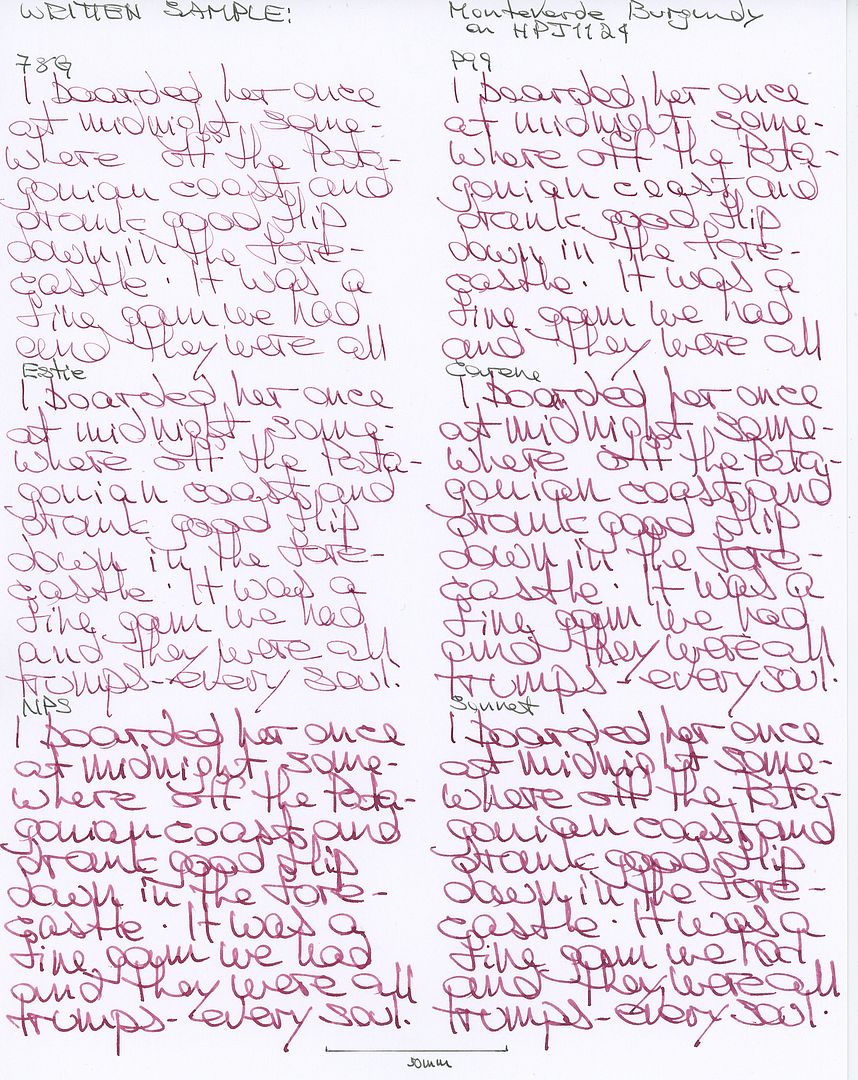 WRITTEN SAMPLE:
Monteverde Burgundy
on HPJ1124
78G
I boarded her once
at midnight some-
where off the Pata-
gonian coast, and
drank good flip
down in the fore-
castle. It was a
fine gam we had
and they were all
P99
I boarded her once
at midnight some-
where off the Pata-
gonian coast, and
drank good flip
down in the fore-
castle. It was a
fine gam we had
and they were all
Estie
I boarded her once
at midnight some-
where off the Pata-
gonian coast, and
drank good flip
down in the fore-
castle. It was a
fine gam we had
and they were all
trumps - every soul.
Carene
I boarded her once
at midnight some-
where off the Pata-
gonian coast, and
drank good flip
down in the fore-
castle. It was a
fine gam we had
and they were all
trumps - every soul.
NPS
I boarded her once
at midnight some-
where off the Pata-
gonian coast, and
drank good flip
down in the fore-
castle. It was a
fine gam we had
and they were all
trumps - every soul.
Sonnet
I boarded her once
at midnight some-
where off the Pata-
gonian coast, and
drank good flip
down in the fore-
castle. It was a
fine gam we had
and they were all
trumps - every soul.
50mm